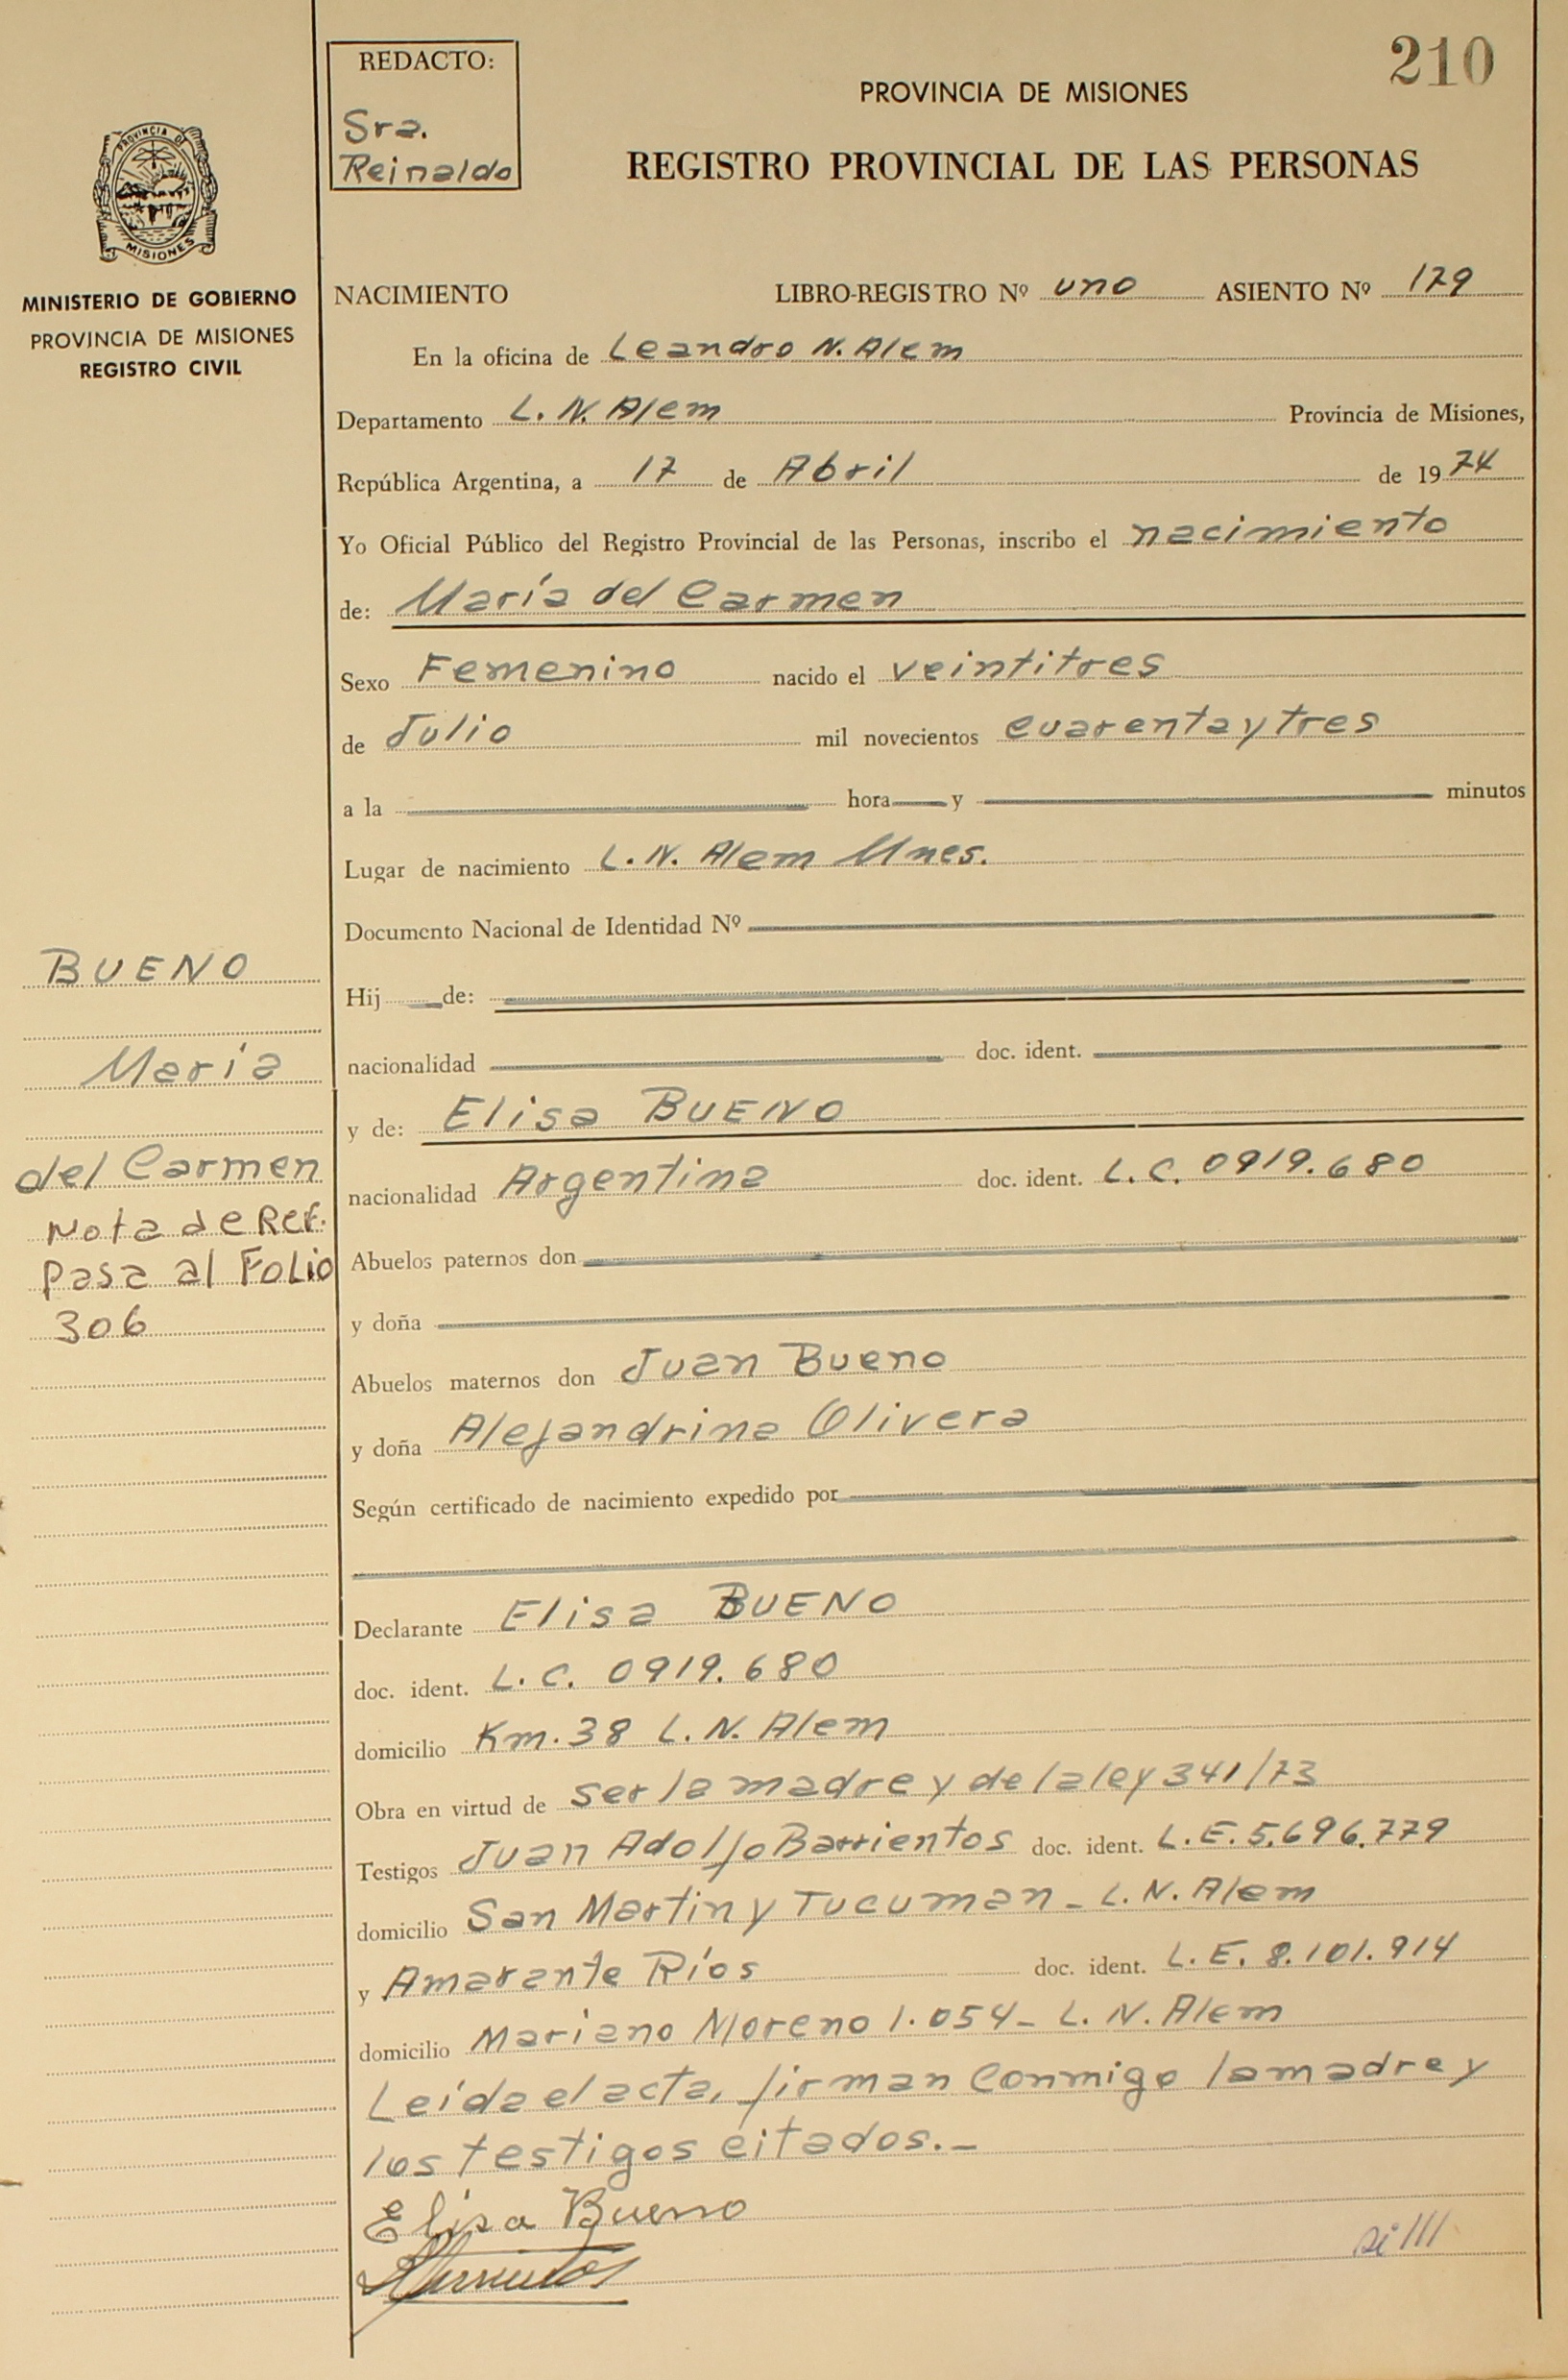 210
REDACTO:
Sra.
Reinaldo
PROVINCIA DE MISIONES
REGISTRO PROVINCIAL DE LAS PERSONAS
PROVINCIA DE
MISIONES
MINISTERIO DE GOBIERNO
PROVINCIA DE MISIONES
REGISTRO CIVIL
NACIMIENTO LIBRO-REGISTRO Nº uno ASIENTO Nº 179
En la oficina de Leandro N. Alem
Departamento L. N. Alem Provincia de Misiones,
República Argentina, a 17 de Abril de 1974
Yo Oficial Público del Registro Provincial de las Personas, inscribo el nacimiento
de: María del Carmen
Sexo Femenino nacido el veintitres
de Julio mil novecientos cuarenta y tres
a la hora y minutos
Lugar de nacimiento L. N. Alem Mnes.
Documento Nacional de Identidad Nº
Hij de:
nacionalidad doc. ident.
y de: Elisa BUENO
nacionalidad Argentina doc. ident. L. C. 0919.680
Abuelos paternos don
y doña
Abuelos maternos don Juan Bueno
y doña Alejandrina Olivera
Según certificado de nacimiento expedido por
Declarante Elisa BUENO
doc. ident. L. C. 0919.680
domicilio Km. 38 L. N. Alem
Obra en virtud de ser la madre y de la ley 341/73
Testigos Juan Adolfo Barrientos doc. ident. L. E. 5.696.779
domicilio San Martin y Tucuman - L. N. Alem
y Amarante Ríos doc. ident. L. E. 8.101.914
domicilio Mariano Moreno 1.054 - L. N. Alem
Leída el acta, firman conmigo la madre y
los testigos citados.-
Elisa Bueno
BUENO
María
del Carmen
Nota de Ref.
Pasa al Folio
306